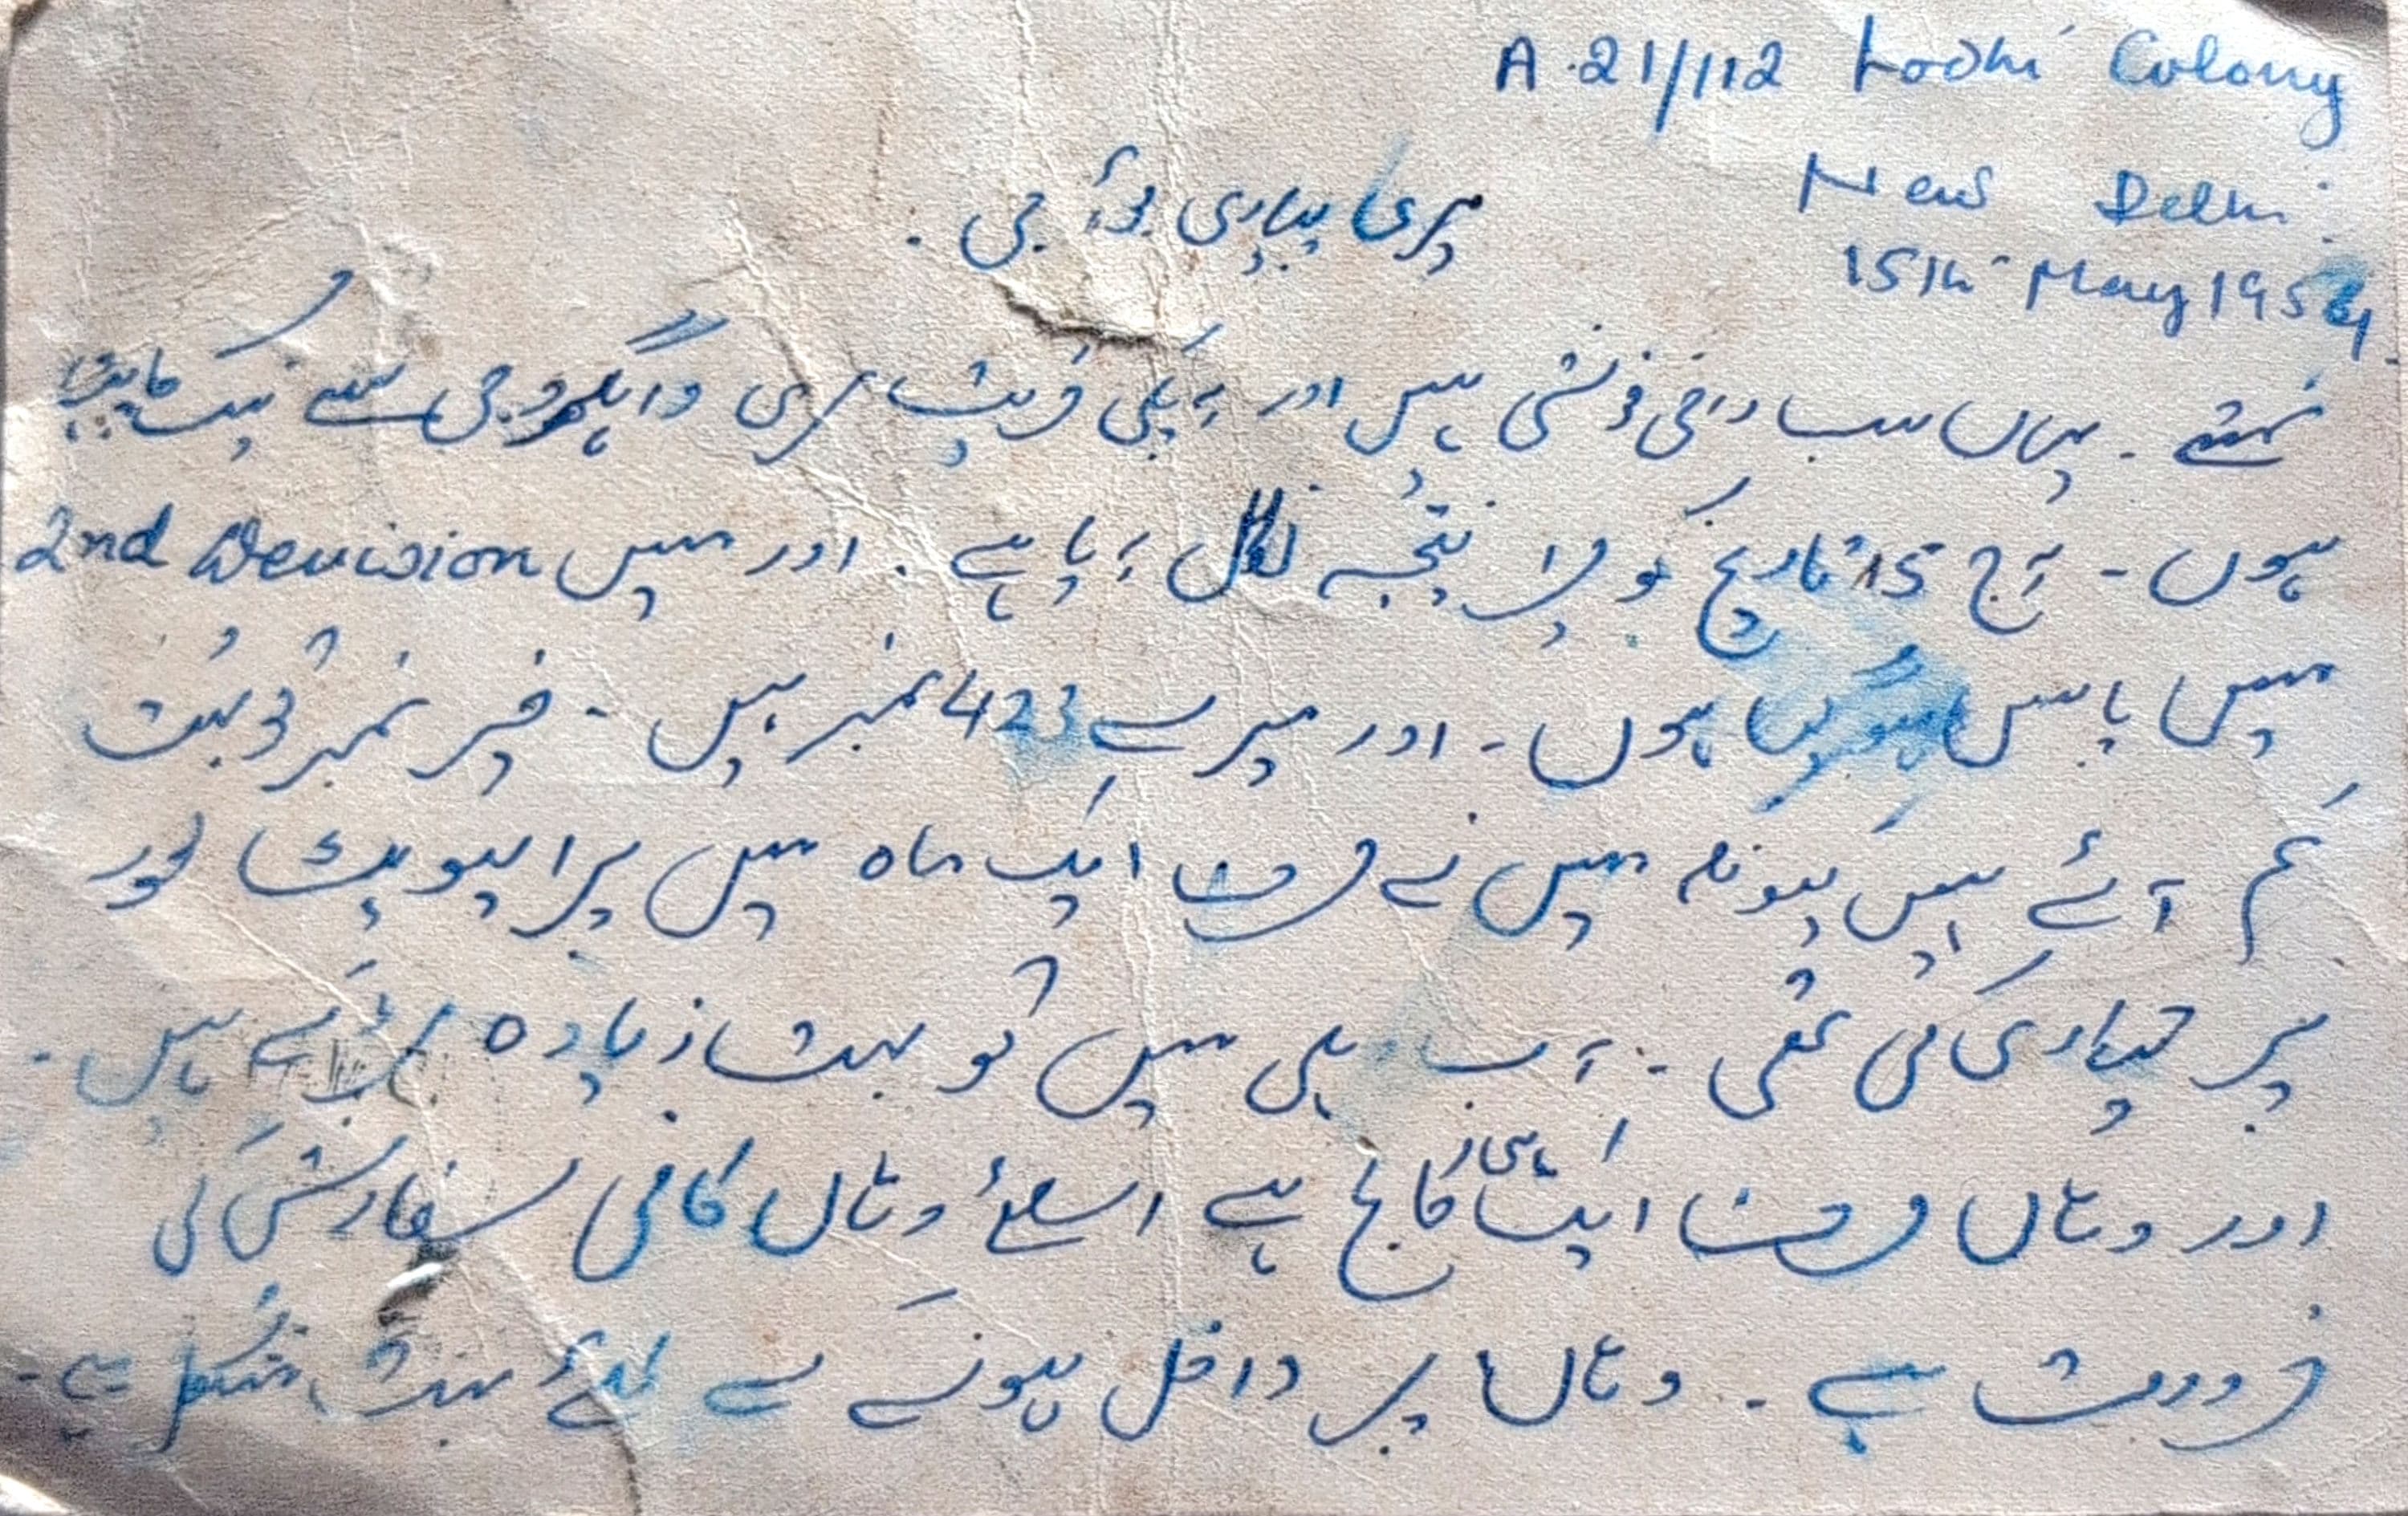 A.21/112 Lodhi Colony
New Delhi.
15th May 1954
میری پیاری بوآ جی.
نمستے - یہاں سب راضی خوشی ہیں اور آپکی خیریت سری واہگورو جی سے نیک چاہتا
ہوں - آج 15 تاریخ کو میرا نتیجہ نکل آیا ہے. اور میں 2nd Devision
میں پاس ہو گیا ہوں - اور میرے 423 نمبر ہیں - خیر نمبر تو بہت
کم آئے ہیں کیونکہ میں نے صرف ایک ماہ میں پرائیویٹ طور
پر تیاری کی تھی - آب دہلی میں تو بہت زیادہ لڑکے ہیں -
اور وہاں صرف ایک ہی کالج ہے اسلئے وہاں کافی سفارش کی
ضرورت ہے - وہاں پر داخل ہونے کے لئے بہت مشکل ہے -